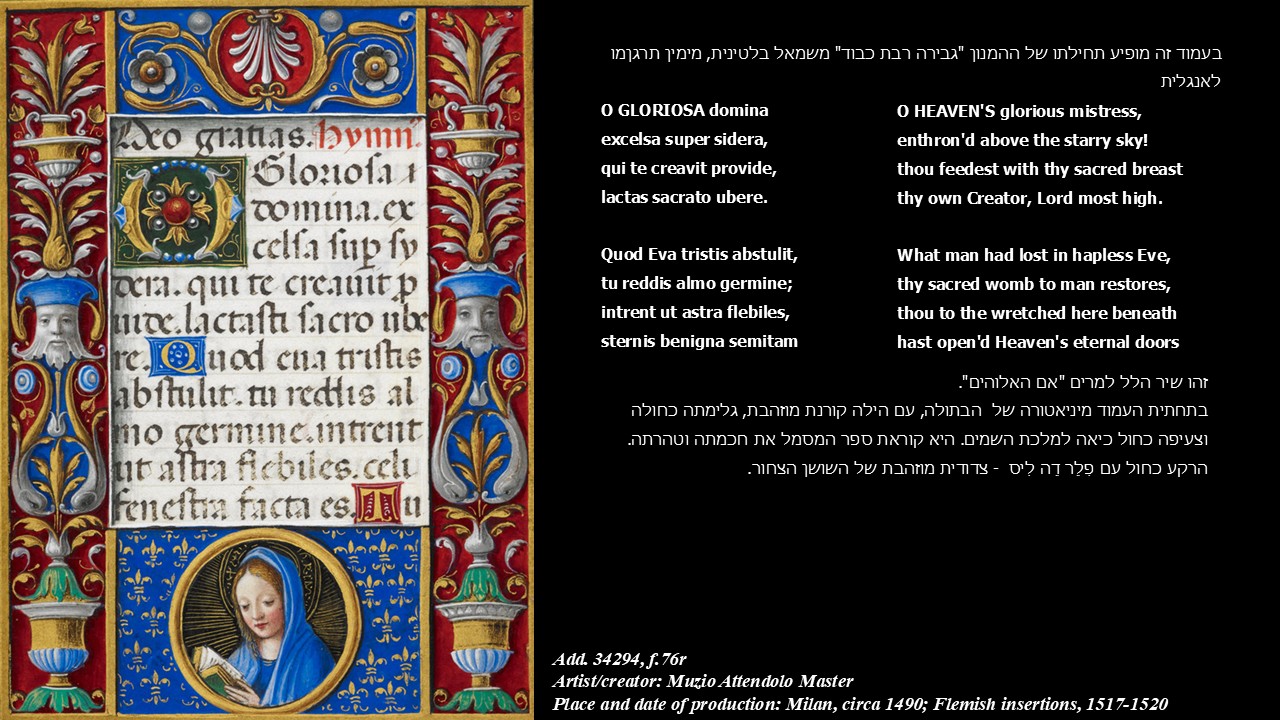 Deo gratias. Hymn'.
O Gloriosa
domina. ex
celsa sup sy
dera. qui te creauit p
uide. lactasti sacro ube
re. Quod eua tristis
abstulit. tu reddis al
mo germine. intrent
ut astra flebiles. celi
fenestra facta es. Tu
בעמוד זה מופיע תחילתו של ההמנון "גבירה רבת כבוד" משמאל בלטינית, מימין תרגןמו
לאנגלית
O GLORIOSA domina
excelsa super sidera,
qui te creavit provide,
lactas sacrato ubere.
Quod Eva tristis abstulit,
tu reddis almo germine;
intrent ut astra flebiles,
sternis benigna semitam
O HEAVEN'S glorious mistress,
enthron'd above the starry sky!
thou feedest with thy sacred breast
thy own Creator, Lord most high.
What man had lost in hapless Eve,
thy sacred womb to man restores,
thou to the wretched here beneath
hast open'd Heaven's eternal doors
זהו שיר הלל למרים "אם האלוהים".
בתחתית העמוד מיניאטורה של הבתולה, עם הילה קורנת מוזהבת, גלימתה כחולה
וצעיפה כחול כיאה למלכת השמים. היא קוראת ספר המסמל את חכמתה וטהרתה.
הרקע כחול עם פְלֵר דֶה לִיס - צדודית מוזהבת של השושן הצחור.
Add. 34294, f.76r
Artist/creator: Muzio Attendolo Master
Place and date of production: Milan, circa 1490; Flemish insertions, 1517-1520